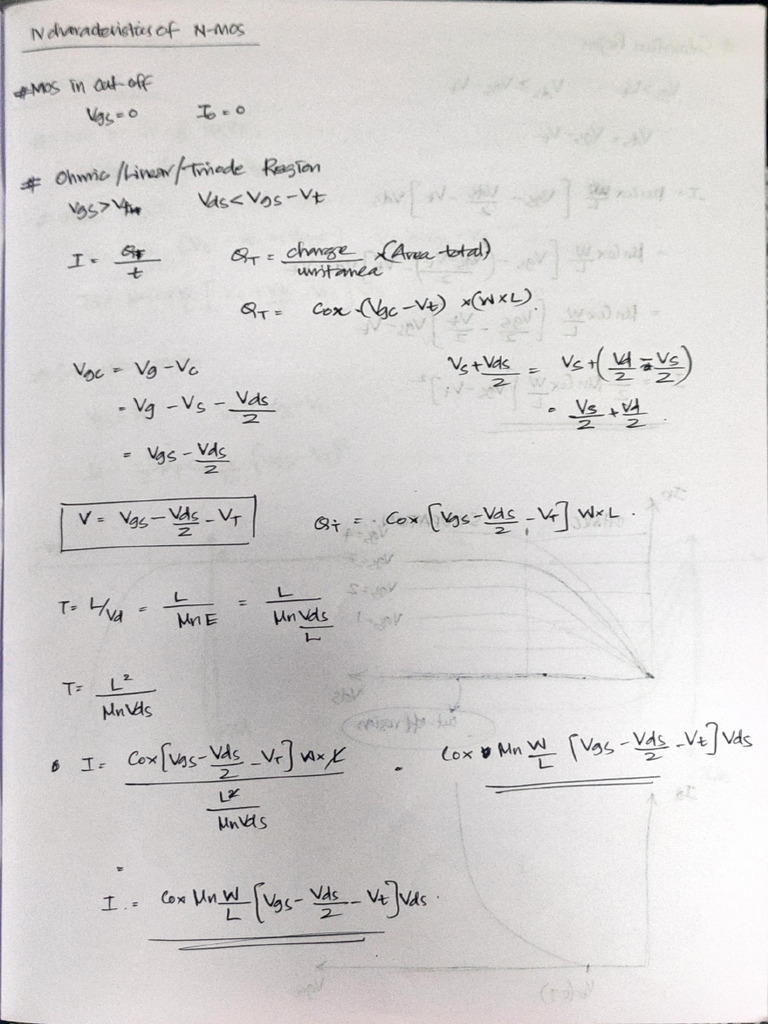 IV characteristics of N-MOS
# MOS in cut-off
Vgs = 0 I_D = 0
# Ohmic/Linear/Triode Region
Vgs > Vth Vds < Vgs - Vt
I = Q_T/t Q_T = charge/unit area × (Area total)
Q_T = Cox · (Vgc - Vt) × (W×L)
Vgc = Vg - Vc Vs + Vds/2 = Vs + (Vd/2 - Vs/2)
= Vg - Vs - Vds/2 = Vs/2 + Vd/2
= Vgs - Vds/2
V = Vgs - Vds/2 - V_T Q_T = Cox [Vgs - Vds/2 - V_T] W×L.
T = L/Vd = L/(μn E) = L/(μn Vds/L)
T = L²/(μn Vds)
I = Cox [Vgs - Vds/2 - V_T] W×L / (L²/(μn Vds)) = Cox μn W/L [Vgs - Vds/2 - Vt] Vds
=
I = Cox μn W/L [Vgs - Vds/2 - Vt] Vds.